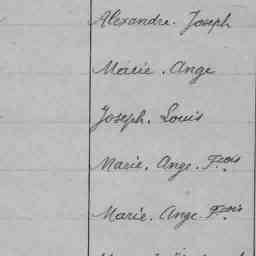 Alexandre. Joseph
Marie. Ange
Joseph. Louis
Marie. Ange. Fçois
Marie. Ange. Fçois